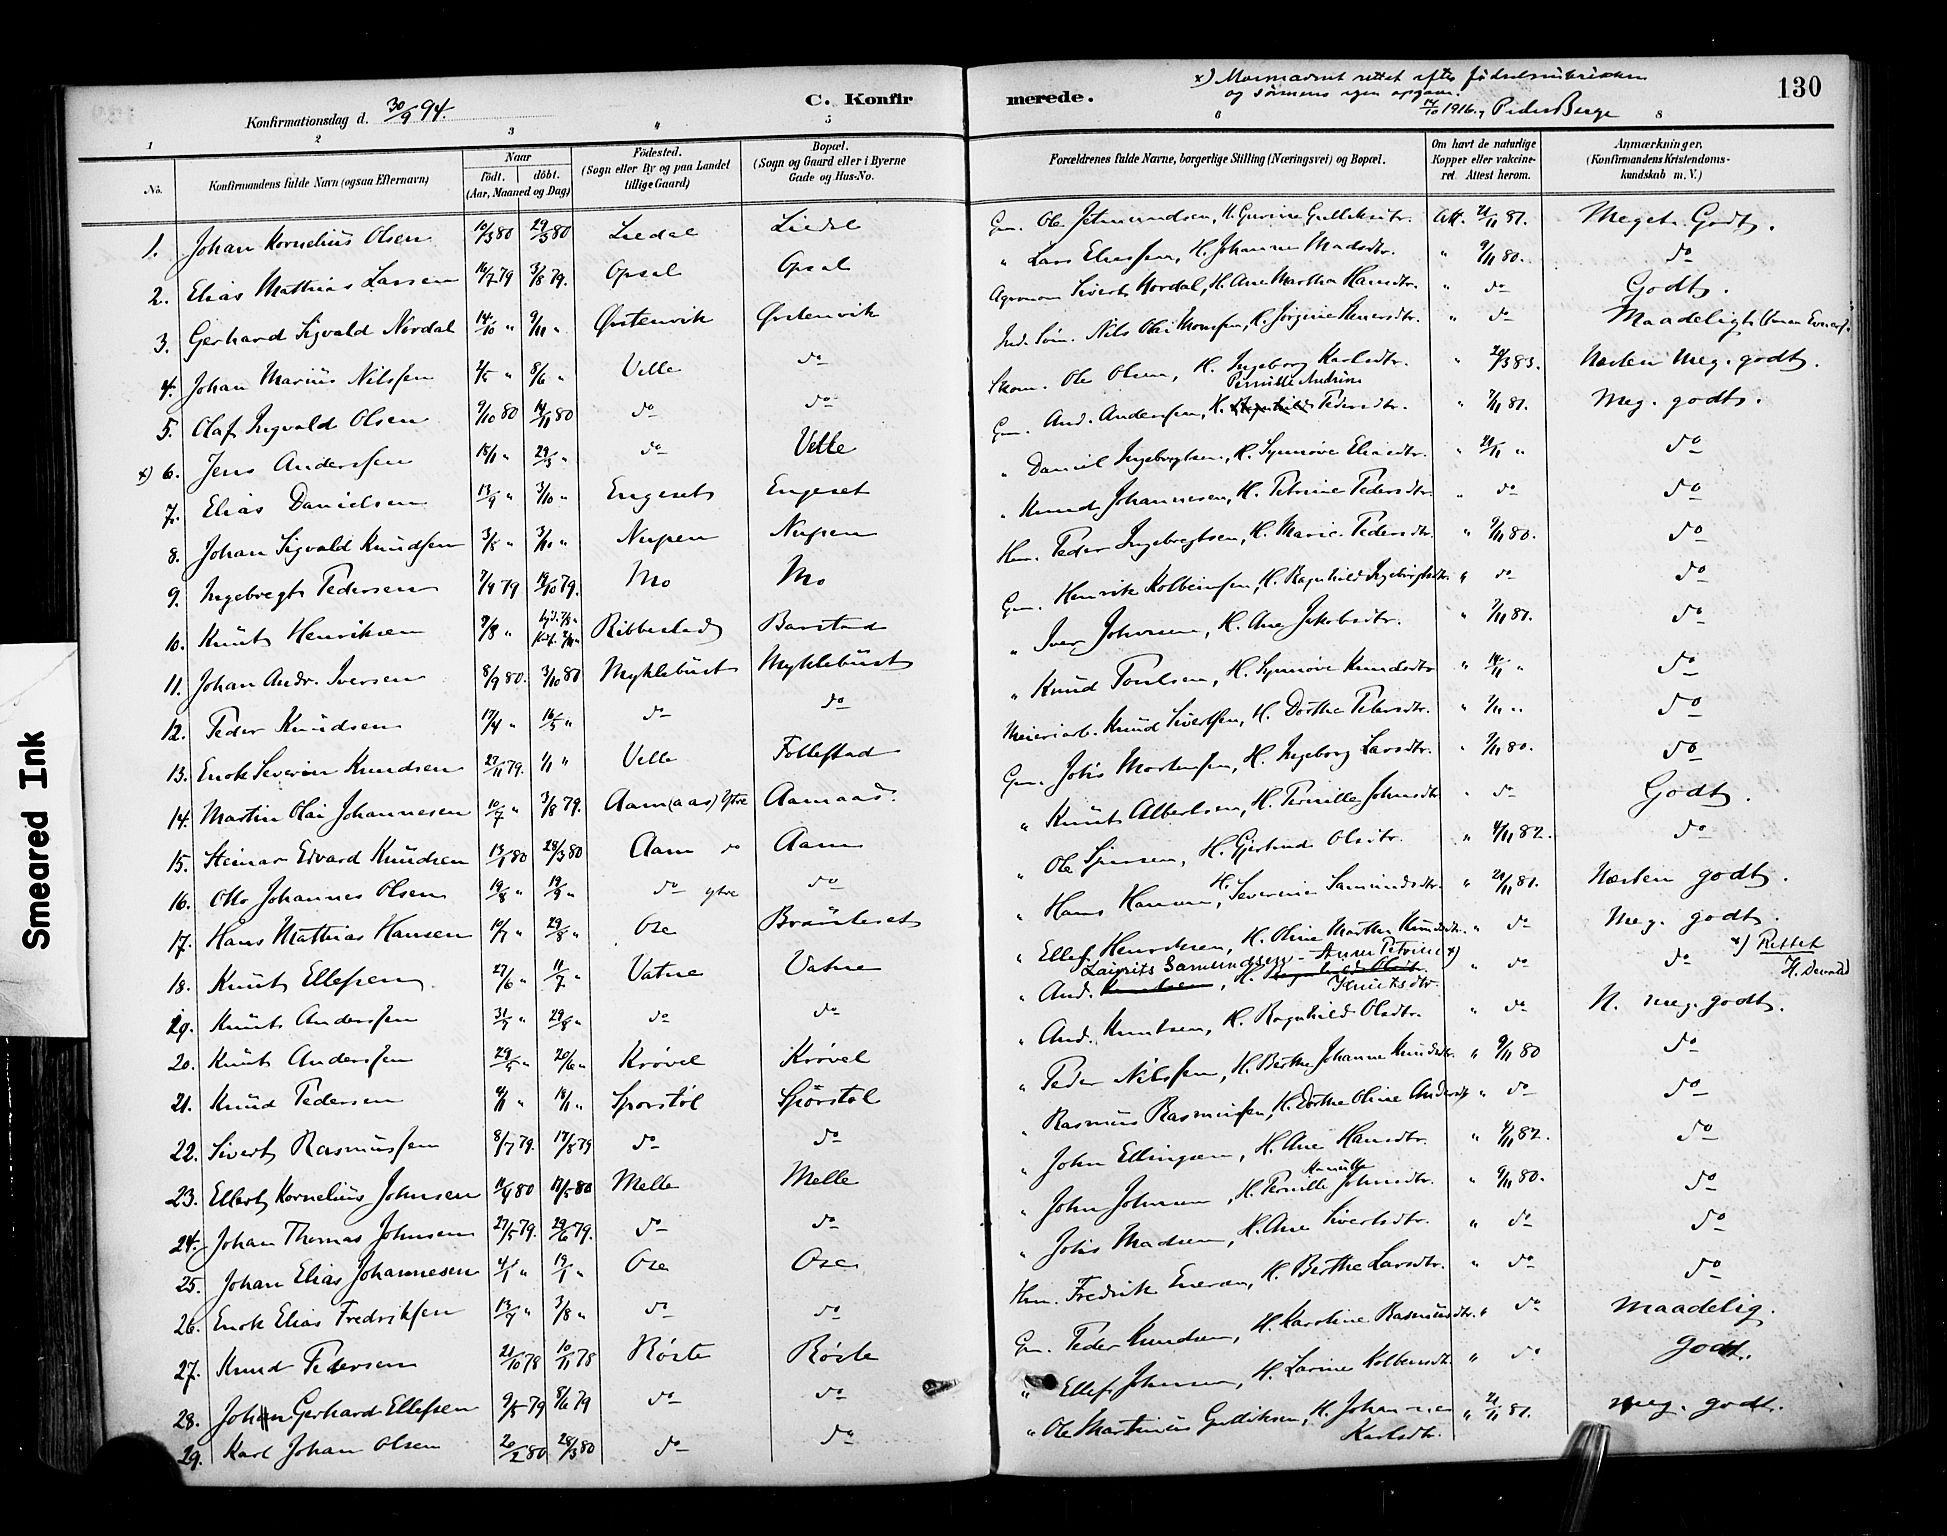 130
x) Morsnavnet rettet efter fødselsministerialen
og sønnens egen opgave.
14/10 1916, Peder Berge
Konfirmationsdag d. 30/9 94.
C. Konfirmerede.
1 2 3 4 5 6 7 8
No. Konfirmandens fulde Navn (ogsaa Efternavn) Naar født. døbt. (Aar, Maaned og Dag) Fødested. (Sogn eller By og paa Landet tillige Gaard) Bopæl. (Sogn og Gaard eller i Byerne Gade og Hus-No. Forældrenes fulde Navne, borgerlige Stilling (Næringsvei) og Bopæl. Om havt de naturlige Kopper eller vakcineret. Attest herom. Anmærkninger. (Konfirmandens Kristendomskundskab m. V.)
1. Johan Kornelius Olsen 10/3 80 29/3 80 Liedal Liedal Gm. Ole Jetmundsen, H. Gurine Gulliksdtr. Att. 21/11 81. Meget Godt.
2. Elias Mathias Larsen 16/7 79 3/8 79. Opsal Opsal " Lars Eliassen, H. Johanne Madsdtr. " 9/11 80. do
3. Gerhard Sigvald Nordal 14/10 " 9/11 " Ørstenvik Ørstenvik Agronom Sivert Nordal, H. Ane Martha Hansdtr. " do Godt.
4. Johan Marius Nilssen 4/5 " 8/6 " Velle do Ind. Søm. Nils Olai Monssen, H. Jørgine Stenersdtr. " do Maadeligt
5. Olaf Ingvald Olsen 9/10 80 14/11 80 do do Skom. Ole Olsen, H. Ingeborg Karlsdtr. " 29/3 83. Næsten meg. godt.
x) 6. Jens Anderssen 18/1 " 29/3 " do Velle Gm. And. Anderssen, H. Pernille Andrine Pedersdtr. " 7/11 81. Meg. godt.
7. Elias Danielsen 13/9 " 3/10 " Engeset Engeset " Daniel Ingebregtsen, H. Synnøve Eliasdtr. " 21/11 " do
8. Johan Sigvald Knudsen 3/8 " 3/10 " Nupen Nupen " Knud Johannesen, H. Petrine Pedersdtr. " do do
9. Ingebregt Pedersen 7/9 79 19/10 79. Mo Mo Hm. Peder Ingebregtsen, H. Marie Pedersdtr. " 9/11 80. do
10. Knut Henriksen 7/8 " Ribbestad Barstad Gm. Henrik Kolbeinsen, H. Ragnhild Ingebrigtsdtr. " do do
11. Johan Andr. Iversen 8/9 80. 3/10 80 Myklebust Myklebust " Iver Johnsen, H. Ane Jakobsdtr. " 7/11 81. do
12. Peder Knudsen 17/4 " 16/5 " do do " Knud Poulsen, H. Synnøve Knudsdtr " 14/11 " do
13. Enok Severin Knudsen 27/11 79. 1/1 " Velle Follestad Meieriarb. Knud Sivertsen, H. Dorthe Petersdtr. " 7/11 " do
14. Martin Olai Johannesen 10/7 " 3/8 79. Aam (aas) Ytre Aamaas. Gm. Johs Mortensen, H. Ingeborg Larsdtr. " 9/11 80. do
15. Steinar Edvard Knudsen 13/1 80 28/3 80 Aam do Aam " Knut Albertsen, H. Pernille Johnsdtr " do Godt.
16. Otto Johannes Olsen 19/8 " 19/9 " do ytre do " Ole Sjursen, H. Gjertrud Olsdtr. " 4/11 82. do
17. Hans Mathias Hansen 10/7 " 29/8 " Ose Brauteset " Hans Hansen, H. Severine Samundsdtr. " 21/11 81. Næsten godt.
18. Knut Ellefsen 27/6 " 11/7 " Vatne Vatne " Ellef Henriksen, H. Oline Marthe Knudsdtr. " do Meg. godt.
19. Knut Anderssen 31/7 " 29/8 " do do " And. Laurits Samundssen, H. Anne Petrine x) Knutsdtr. " do do x) Rettet
20. Knut Anderssen 29/5 " 20/6 " Krøvel Krøvel " And. Knutsen, H. Ragnhild Olsdtr. " do N. meg. godt.
21. Knud Pedersen 4/11 " 18/11 " Sporstøl Sporstøl " Peder Nilssen, H. Berthe Johanne Knudsdtr. " 9/11 80 do
22. Sivert Rasmussen 8/7 79. 17/8 79 do do " Rasmus Rasmussen, H. Dorthe Oline Andersdtr " do do
23. Ellert Kornelius Johnsen 11/4 80 17/5 80 Melle Melle " John Ellingsen, H. Ane Hansdtr. " 4/11 82. do
24. Johan Thomas Johnsen 27/5 79. 29/6 79. do do " John Johnsen, H. Pernille Johnsdtr. " 9/11 80. do
25. Johan Elias Johannesen 4/1 " 19/1 " Ose Ose " Johs Madsen, H. Ane Sivertsdtr. " do do
26. Enok Elias Fredriksen 13/7 " 3/8 " do do Hm. Fredrik Enersen, H. Berthe Larsdtr. " do do
27. Knud Pedersen 21/10 78 10/11 78 Røste Røste Gm. Peder Knudsen, H. Karoline Rasmusdtr. " do Maadelig.
28. Johan Gerhard Ellefsen 9/5 79 8/6 79 do do " Ellef Johnsen, H. Larine Kolbensdtr. " do Godt.
29. Karl Johan Olsen 20/2 80 28/3 80 do do " Ole Martinus Gulliksen, H. Johanne Karlsdtr. " 21/11 81. meg. godt.
Smeared Ink